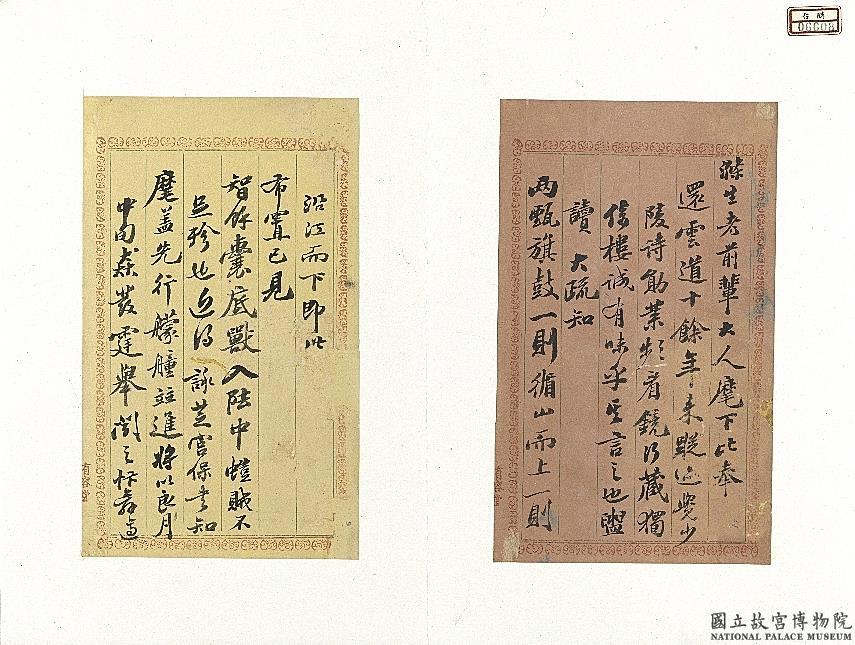 滌生老前輩大人麾下比奉
還雲道十餘年來蹤迹覺少
陵詩勛業頻看鏡行藏獨
倚樓誠有味乎其言之也盥
讀 大疏知
兩甄旗鼓一則循山而上一則
沿江而下即此
布置已見
智餘囊底獸入陸中螳賊不
足殄也近得 詠芝宮保書知
麾蓋先行艨艟竝進將以良月
中旬森發霆舉聞之忭舞
有容堂
有容堂
06608
國立故宮博物院
NATIONAL PALACE MUSEUM